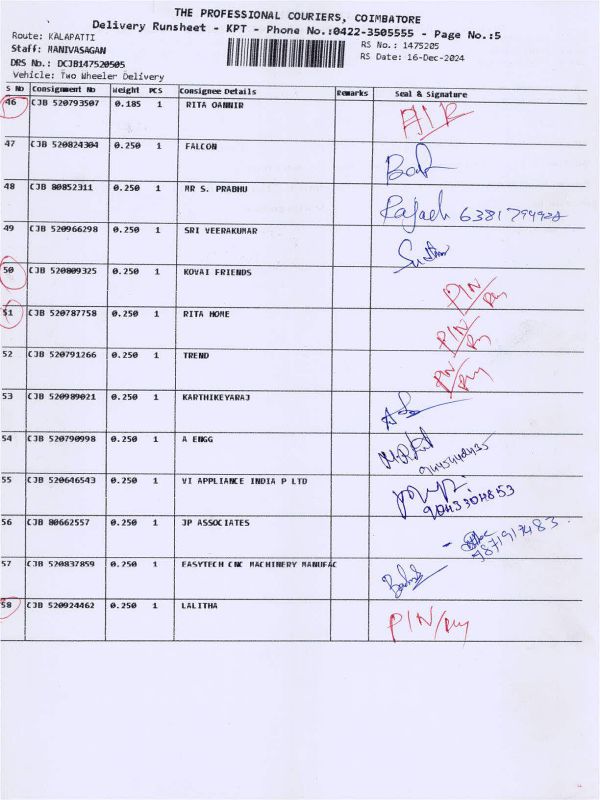 THE PROFESSIONAL COURIERS, COIMBATORE
Delivery Runsheet - KPT - Phone No.:0422-3505555 - Page No.:5
Route: KALAPATTI
RS No.: 1475205
Staff: MANIVASAGAN
RS Date: 16-Dec-2024
DRS No.: DCJB147520505
Vehicle: Two Wheeler Delivery
S No Consignment No Weight PCS Consignee Details Remarks Seal & Signature
46 CJB 520793507 0.185 1 RITA OANNIR AIR
47 CJB 520824304 0.250 1 FALCON
48 CJB 80852311 0.250 1 MR S. PRABHU Rajaeh 6381794928
49 CJB 520966298 0.250 1 SRI VEERAKUMAR
50 CJB 520809325 0.250 1 KOVAI FRIENDS PIN/Ry
51 CJB 520787758 0.250 1 RITA HOME PIN/Ry
52 CJB 520791266 0.250 1 TREND PIN/Ry
53 CJB 520989021 0.250 1 KARTHIKEYARAJ
54 CJB 520790998 0.250 1 A ENGG
55 CJB 520646543 0.250 1 VI APPLIANCE INDIA P LTD 9043304853
56 CJB 80662557 0.250 1 JP ASSOCIATES
57 CJB 520837859 0.250 1 EASYTECH CNC MACHINERY MANUFAC
58 CJB 520924462 0.250 1 LALITHA PIN/Ry